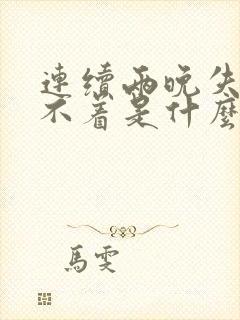 連續兩晚失
不着是什麼
馬雯